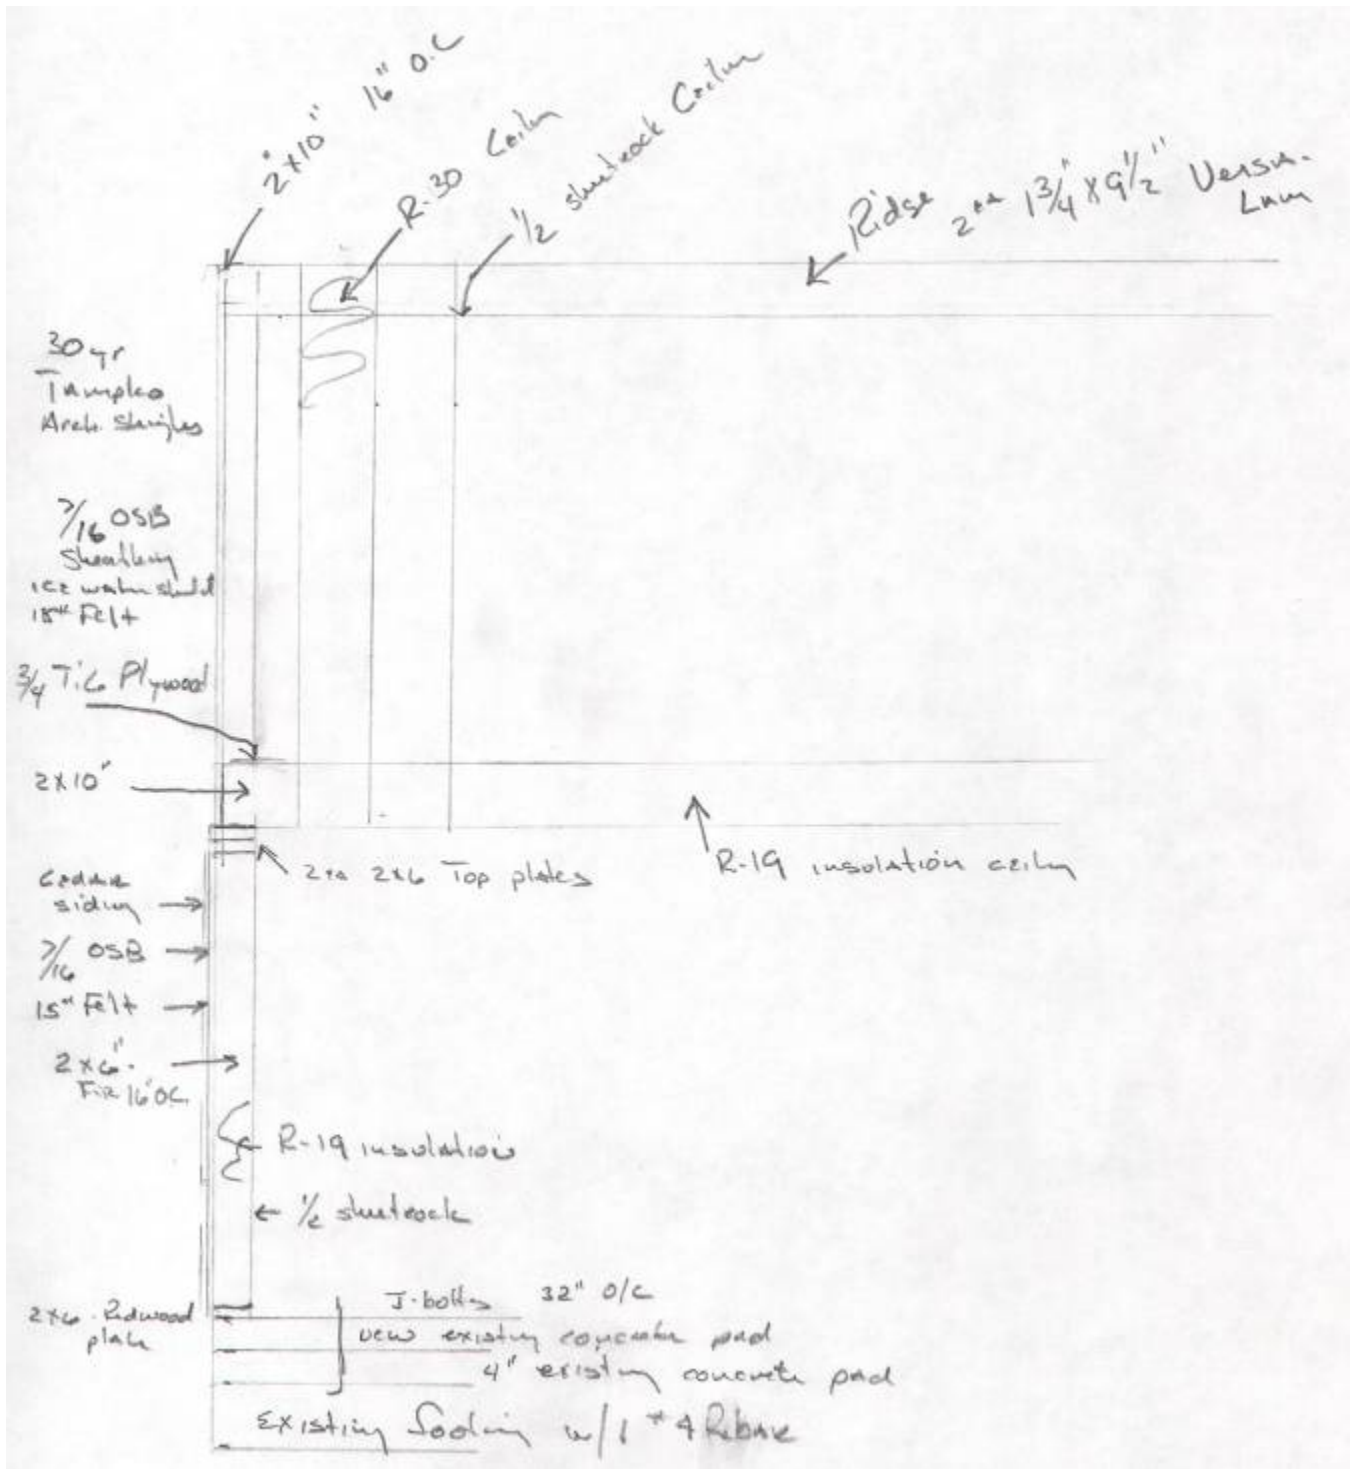 2x10" 16" O.C
R-30 Ceilin
1/2 sheetrock Ceilin
Ridge 2ea 1 3/4" x 9 1/2" Versa-
Lam
30 yr
Tampko
Arch Shingles
7/16 OSB
Sheathing
ice water shield
15# Felt
3/4 T&G Plywood
2x10"
2ea 2x6 Top plates
R-19 insulation ceilin
Cedar
siding
7/16 OSB
15# Felt
2x6"
Fir 16" OC
R-19 insulation
1/2 sheetrock
J-bolts 32" O/C
2x6 Redwood
plate
new existing concrete pad
4" existing concrete pad
Existing footing w/1 #4 Rebar